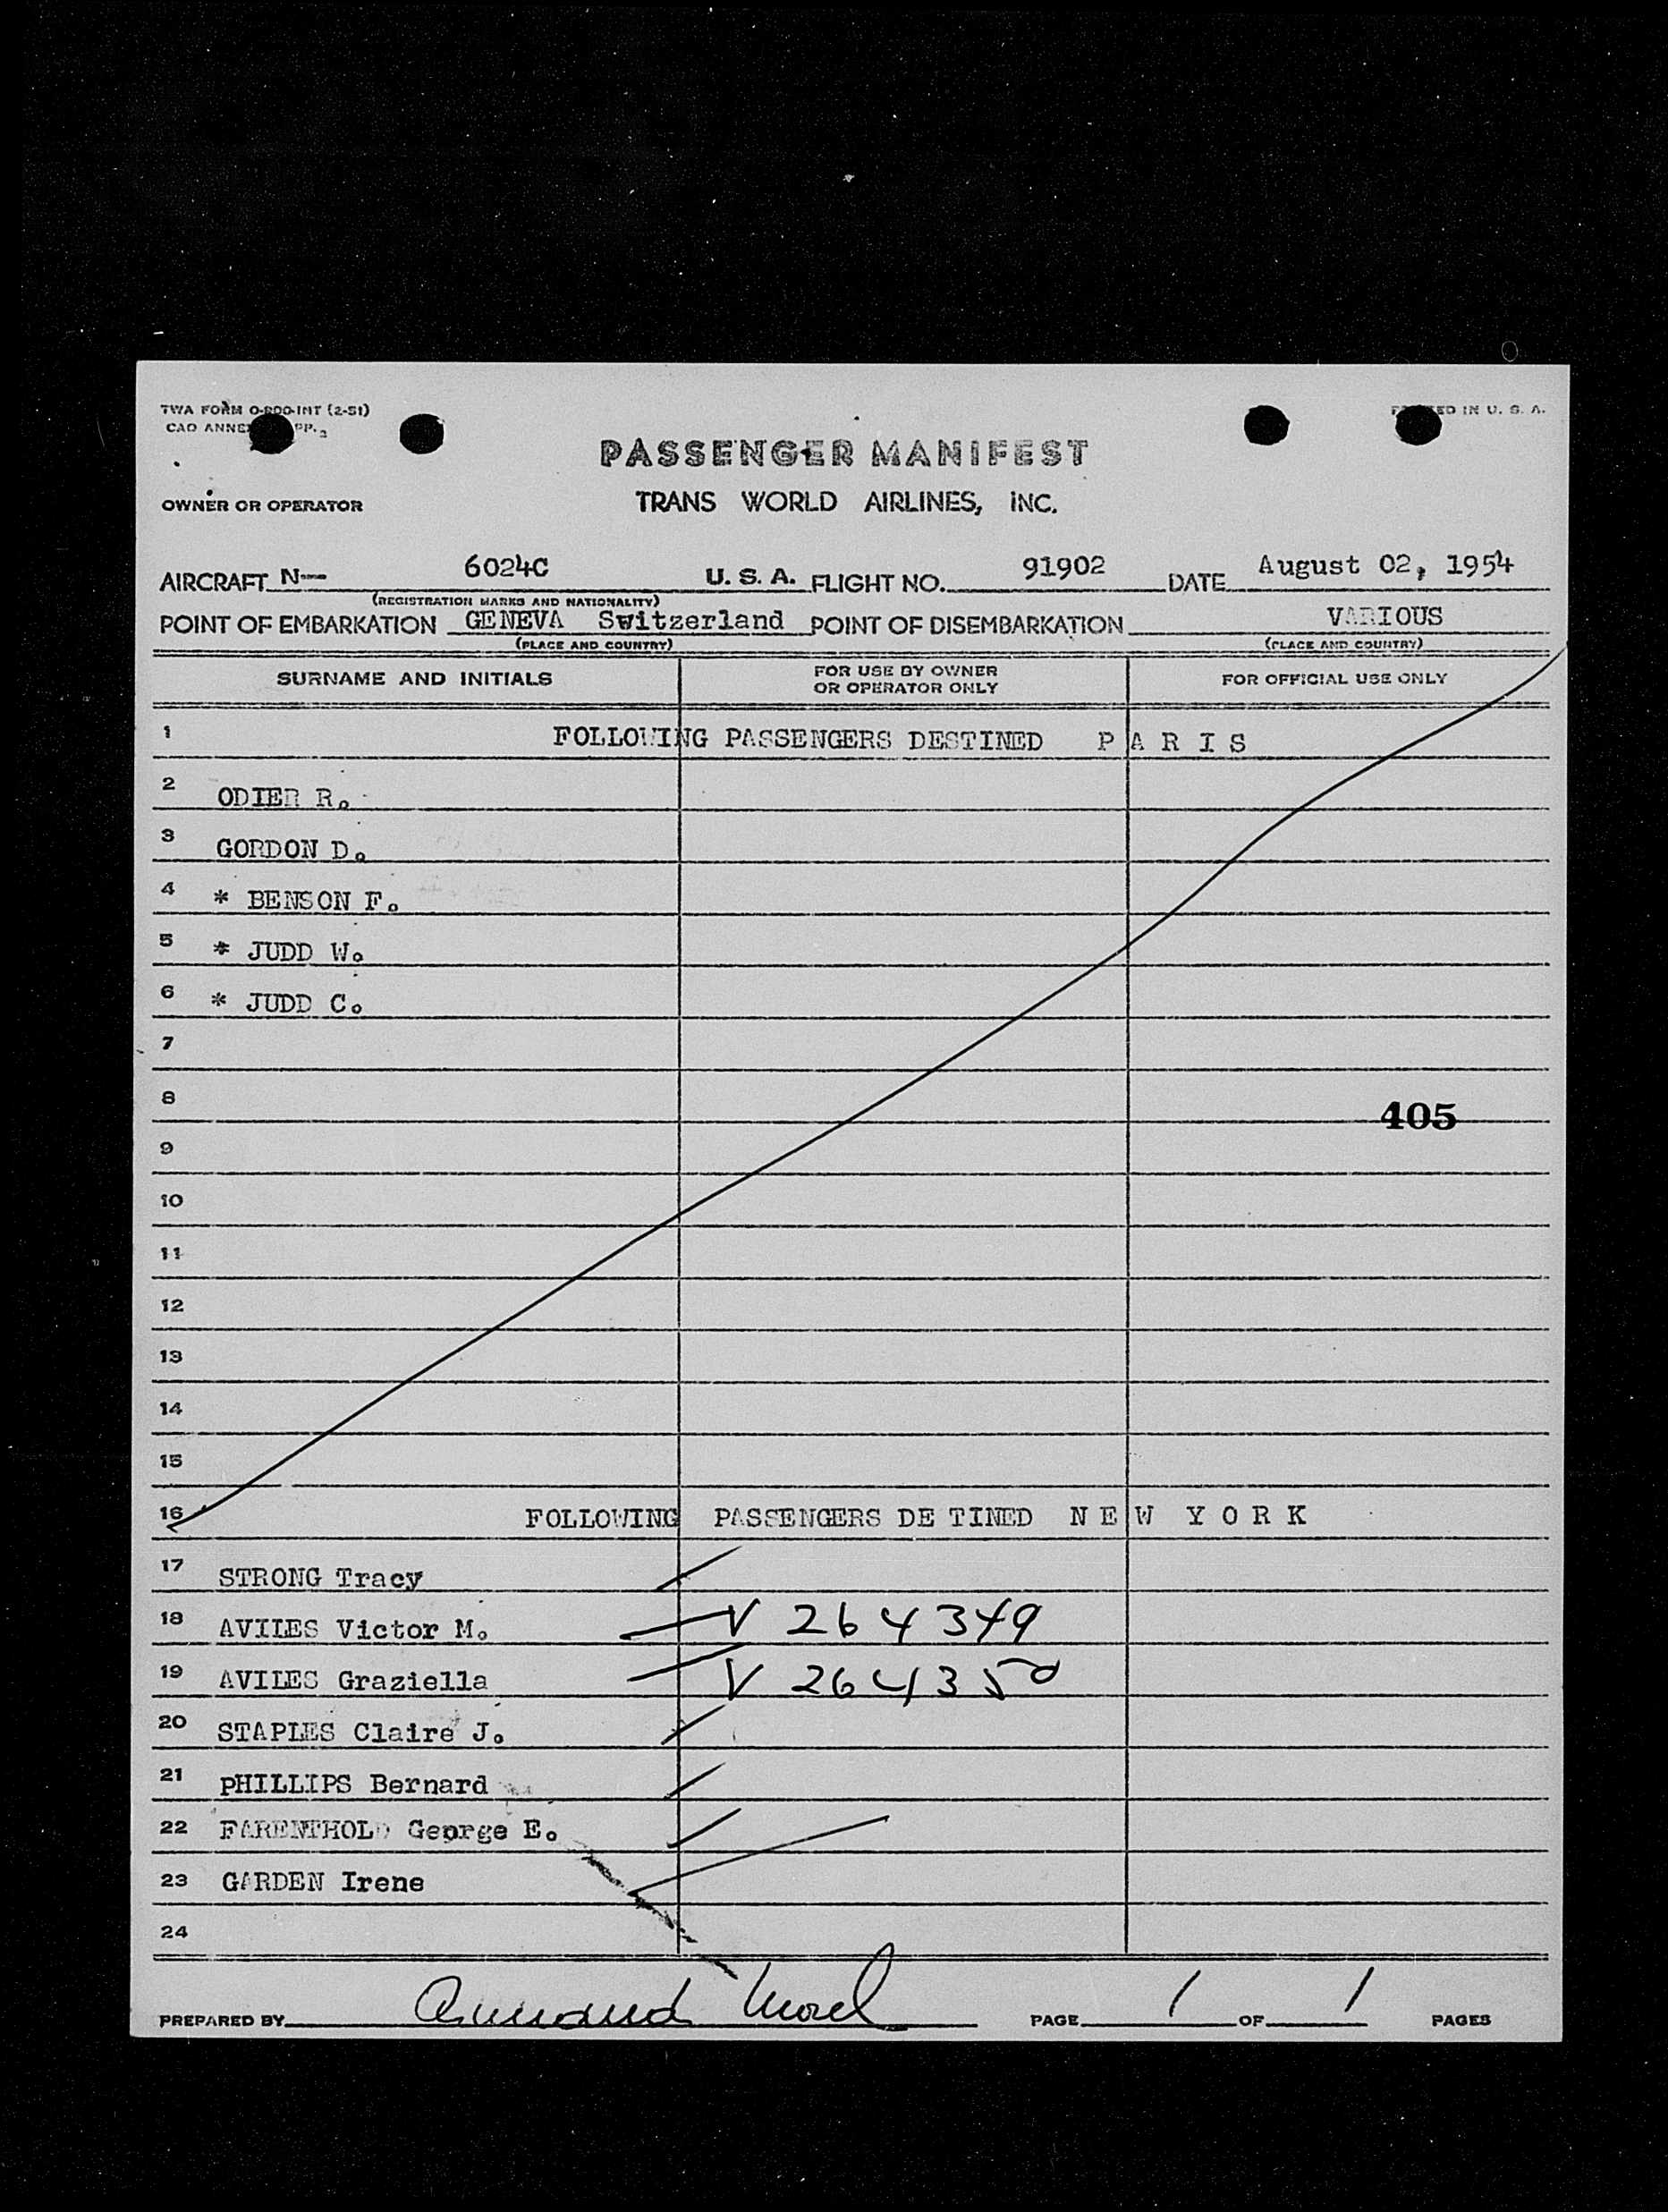 TWA FORM O-800-INT (2-51)
PRINTED IN U. S. A.
CAO ANNEX PP. 2
PASSENGER MANIFEST
OWNER OR OPERATOR TRANS WORLD AIRLINES, INC.
AIRCRAFT N-- 6024C U. S. A. FLIGHT NO. 91902 DATE August 02, 1954
(REGISTRATION MARKS AND NATIONALITY)
POINT OF EMBARKATION GENEVA Switzerland POINT OF DISEMBARKATION VARIOUS
(PLACE AND COUNTRY) (PLACE AND COUNTRY)
SURNAME AND INITIALS FOR USE BY OWNER OR OPERATOR ONLY FOR OFFICIAL USE ONLY
1 FOLLOWING PASSENGERS DESTINED P A R I S
2 ODIER R.
3 GORDON D.
4 * BENSON F.
5 * JUDD W.
6 * JUDD C.
7
8 405
9
10
11
12
13
14
15
16 FOLLOWING PASSENGERS DE TINED N E W Y O R K
17 STRONG Tracy
18 AVILES Victor M. V 264349
19 AVILES Graziella V 264350
20 STAPLES Claire J.
21 pHILLIPS Bernard
22 FARENTHOLD George E.
23 GARDEN Irene
24
PREPARED BY Armand Morel PAGE 1 OF 1 PAGES